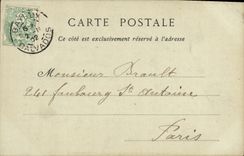 CARTE POSTALE
Ce côté est exclusivement réservé à l'adresse
CALVADOS
Monsieur Brault
241 faubourg St Antoine
Paris